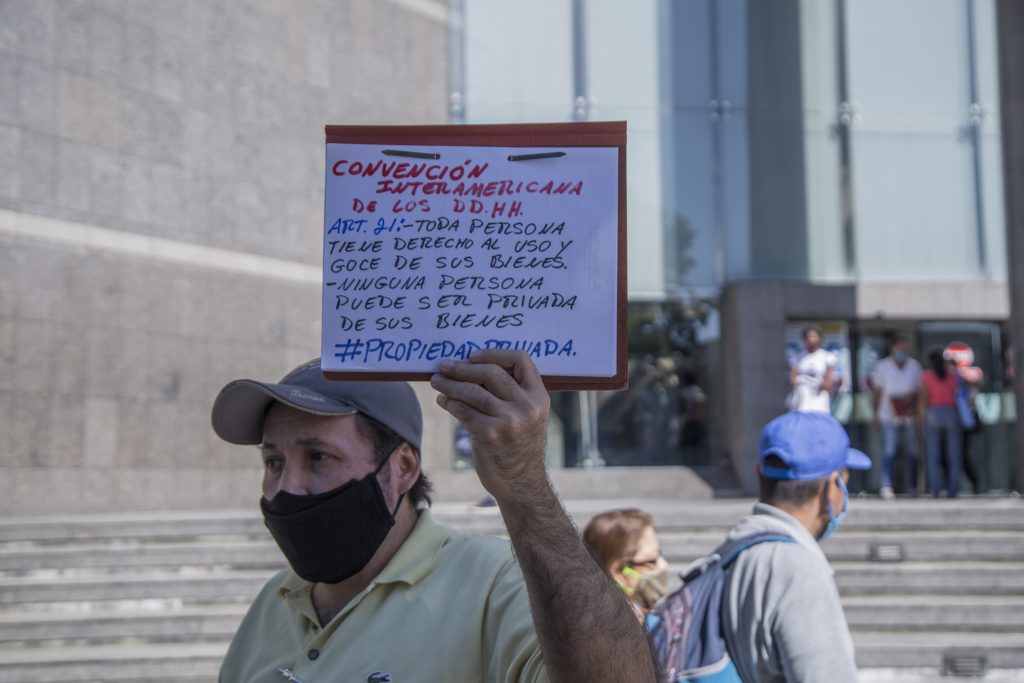 CONVENCIÓN
INTERAMERICANA
DE LOS DD.HH.
ART. 21:-TODA PERSONA
TIENE DERECHO AL USO Y
GOCE DE SUS BIENES.
-NINGUNA PERSONA
PUEDE SER PRIVADA
DE SUS BIENES
#PROPIEDADPRIVADA.